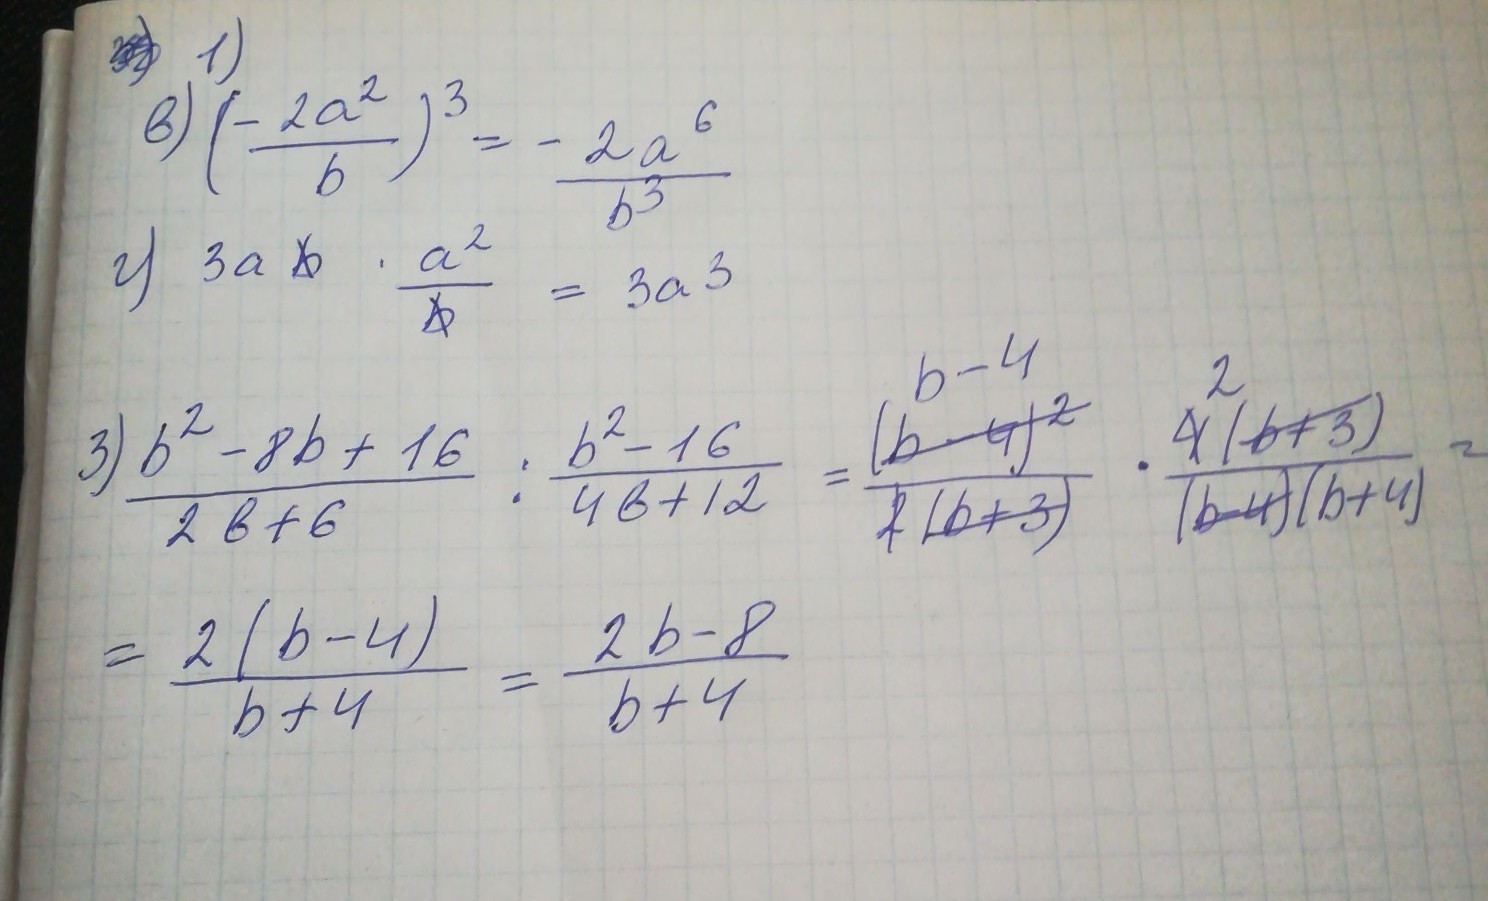 1)
в) (- 2a²/b)³ = - 2a⁶/b³
г) 3ab · a²/b = 3a³
b-4 2
3) b²-8b+16/2в+6 : b²-16/4в+12 = (b-4)²/2(b+3) · 4(b+3)/(b-4)(b+4) =
= 2(b-4)/b+4 = 2b-8/b+4